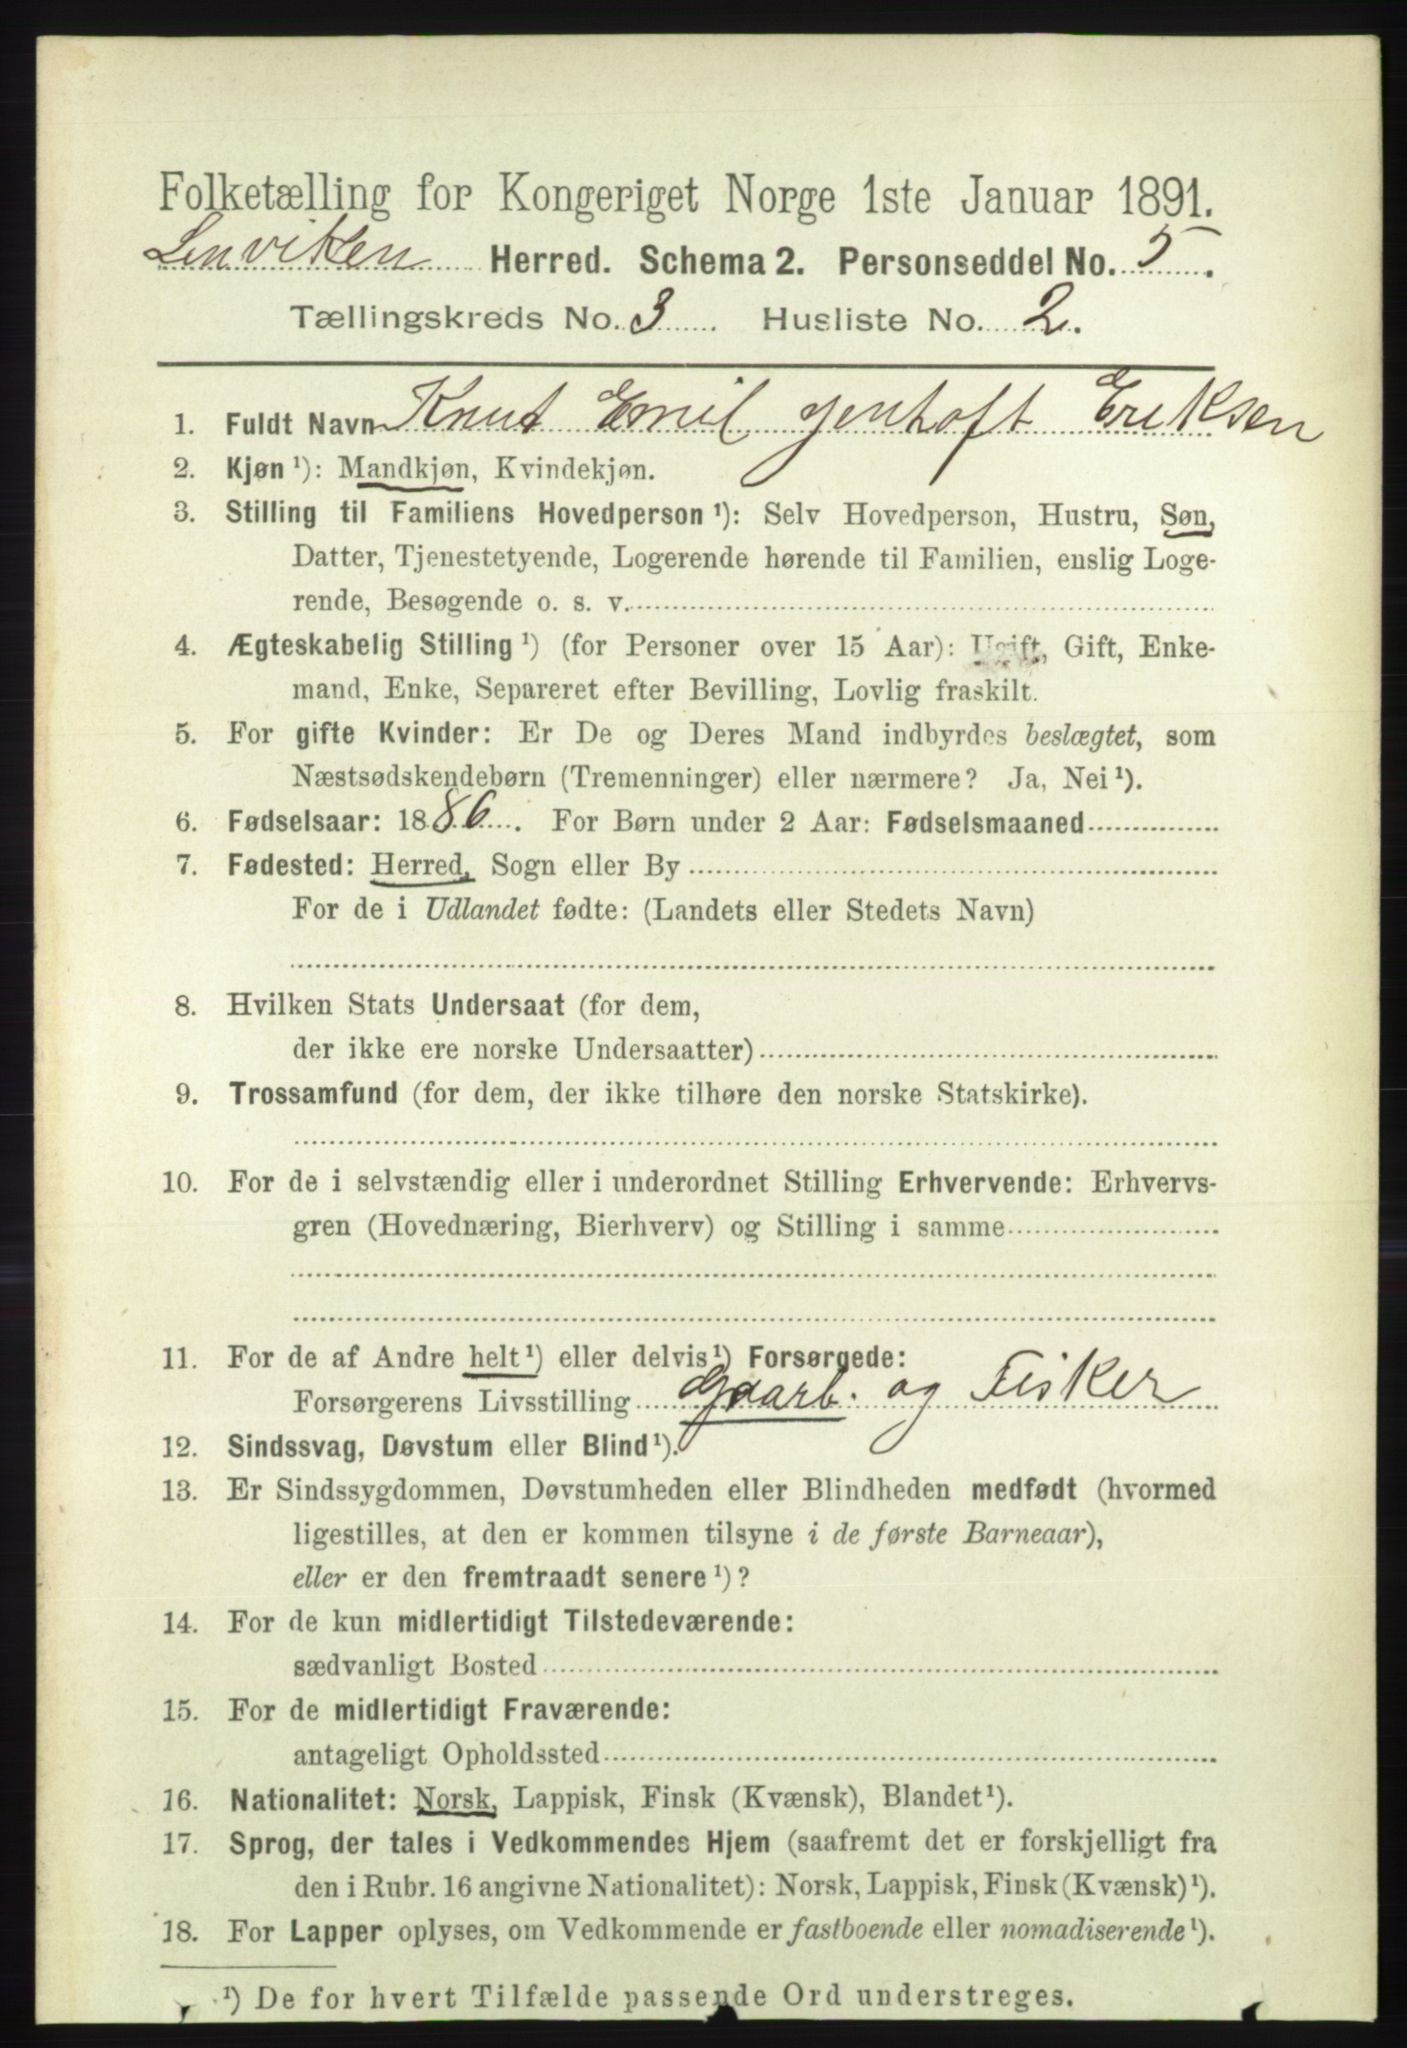 Folketælling for Kongeriget Norge 1ste Januar 1891.
Lenviken Herred. Schema 2. Personseddel No. 5.
Tællingskreds No. 3 Husliste No. 2.
1. Fuldt Navn Knut Emil Jenhoft Eriksen
2. Kjøn ¹): Mandkjøn, Kvindekjøn.
3. Stilling til Familiens Hovedperson ¹): Selv Hovedperson, Hustru, Søn,
Datter, Tjenestetyende, Logerende hørende til Familien, enslig Loge-
rende, Besøgende o. s. v.
4. Ægteskabelig Stilling ¹) (for Personer over 15 Aar): Ugift, Gift, Enke-
mand, Enke, Separeret efter Bevilling, Lovlig fraskilt.
5. For gifte Kvinder: Er De og Deres Mand indbyrdes beslægtet, som
Næstsødskendebørn (Tremenninger) eller nærmere? Ja, Nei ¹).
6. Fødselsaar: 1886. For Børn under 2 Aar: Fødselsmaaned
7. Fødested: Herred, Sogn eller By
For de i Udlandet fødte: (Landets eller Stedets Navn)
8. Hvilken Stats Undersaat (for dem,
der ikke ere norske Undersaatter)
9. Trossamfund (for dem, der ikke tilhøre den norske Statskirke).
10. For de i selvstændig eller i underordnet Stilling Erhvervende: Erhvervs-
gren (Hovednæring, Bierhverv) og Stilling i samme
11. For de af Andre helt ¹) eller delvis ¹) Forsørgede:
Forsørgerens Livsstilling Gaarb. og Fisker
12. Sindssvag, Døvstum eller Blind ¹).
13. Er Sindssygdommen, Døvstumheden eller Blindheden medfødt (hvormed
ligestilles, at den er kommen tilsyne i de første Barneaar),
eller er den fremtraadt senere ¹)?
14. For de kun midlertidigt Tilstedeværende:
sædvanligt Bosted
15. For de midlertidigt Fraværende:
antageligt Opholdssted
16. Nationalitet: Norsk, Lappisk, Finsk (Kvænsk), Blandet ¹).
17. Sprog, der tales i Vedkommendes Hjem (saafremt det er forskjelligt fra
den i Rubr. 16 angivne Nationalitet): Norsk, Lappisk, Finsk (Kvænsk) ¹).
18. For Lapper oplyses, om Vedkommende er fastboende eller nomadiserende ¹).
¹) De for hvert Tilfælde passende Ord understreges.